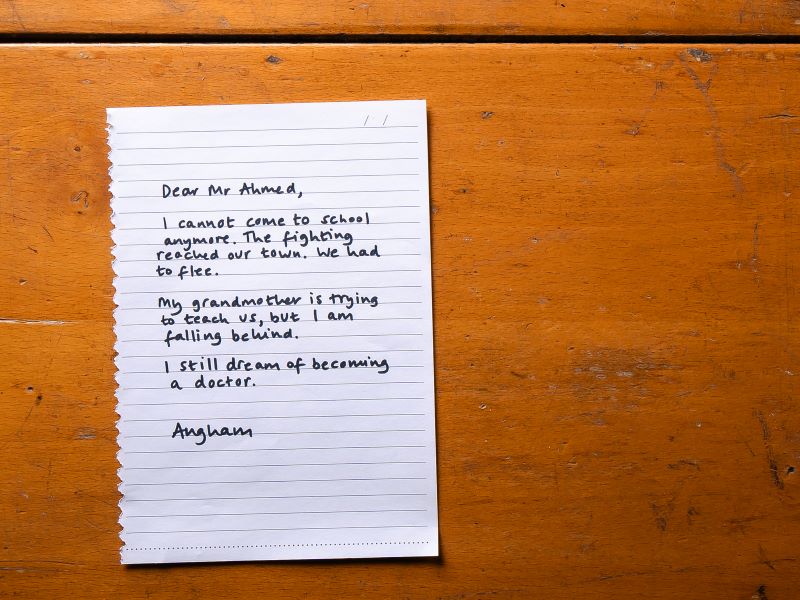 Dear Mr Ahmed,
I cannot come to school
anymore. The fighting
reached our town. We had
to flee.
My grandmother is trying
to teach us, but I am
falling behind.
I still dream of becoming
a doctor.
Angham